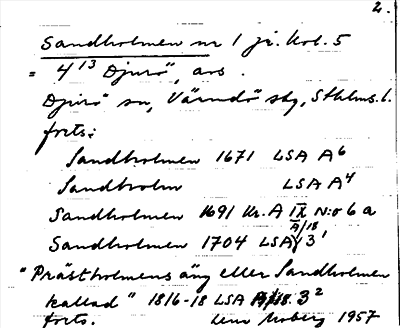 2.
Sandholmen nr 1 jr. kol. 5
= 4¹³ Djurö, avs.
Djurö sn, Värmdö skg, Sthlms. l.
forts:
Sandholmen 1671 LSA A⁶
Sandholm LSA A⁴
Sandholmen 1691 Kr. A IX No 6 a
A/18
Sandholmen 1704 LSA 3¹
"Prästholmens äng eller Sandholmen
kallad" 1816-18 LSA A/18. 3²
forts. Lena Moberg 1957